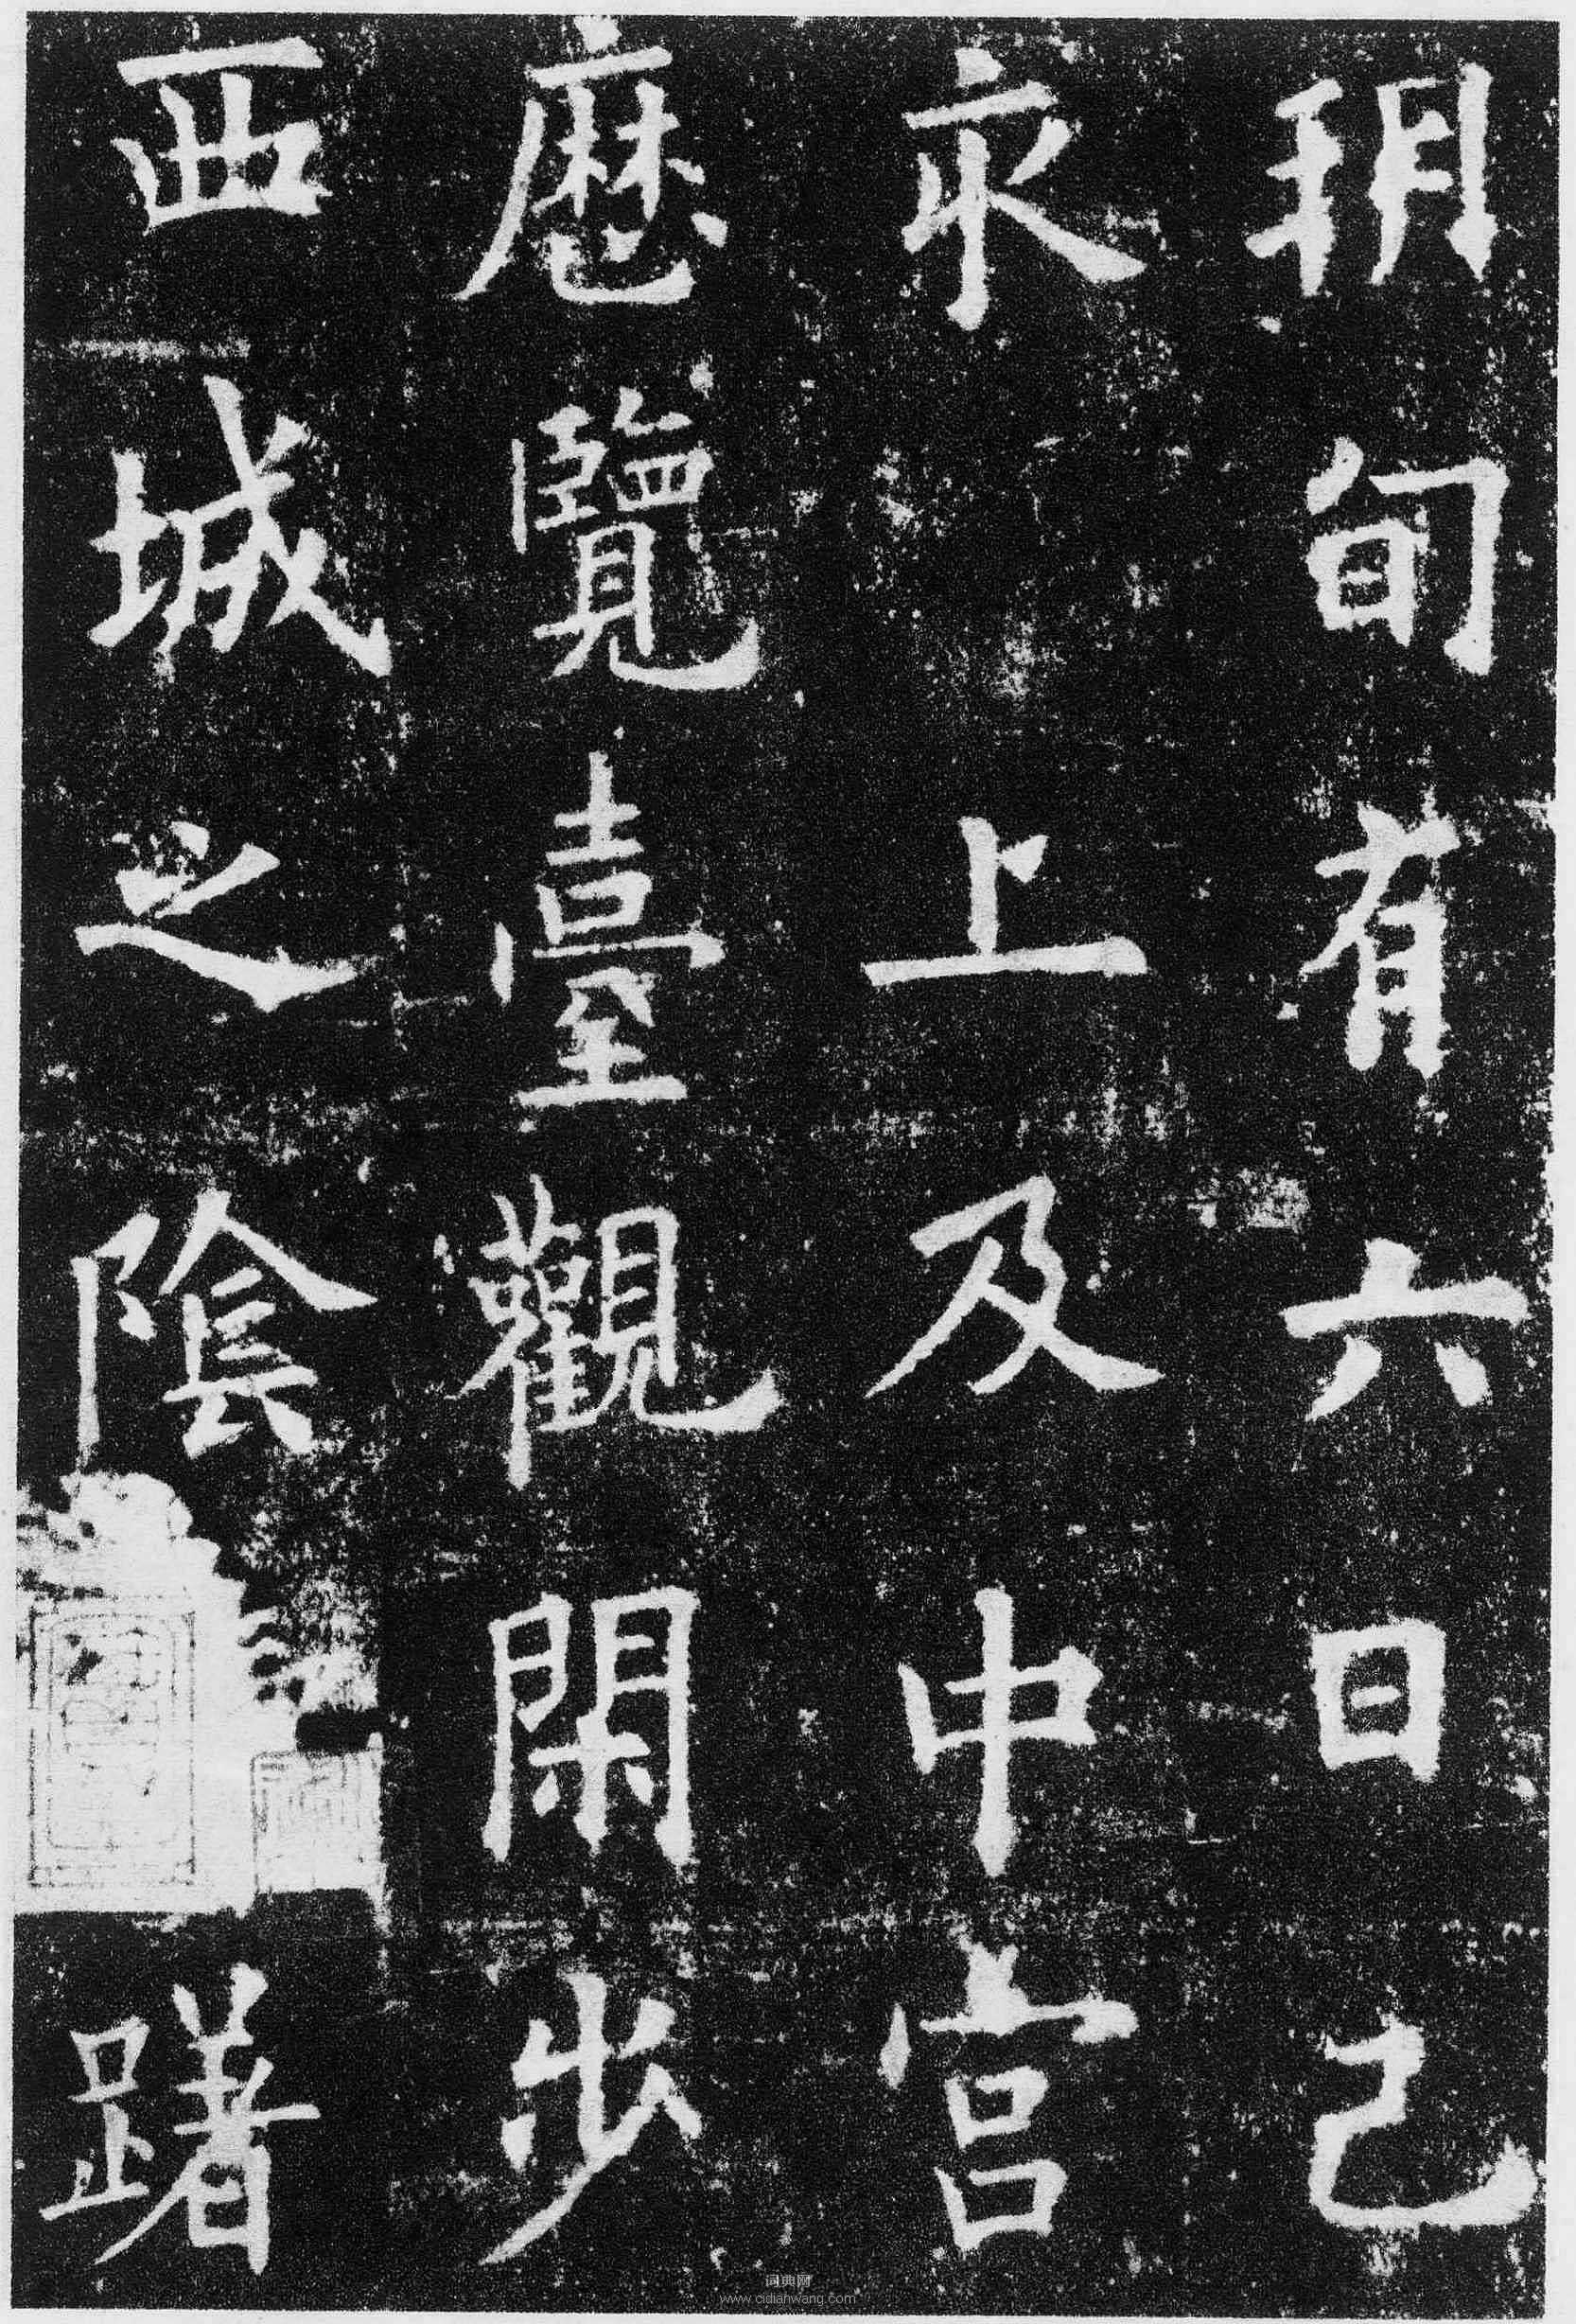 玥旬有六日己
亥　上及中宫
歷覽臺觀閑步
西城之陰躊躇
词典网
www.cidianwang.com